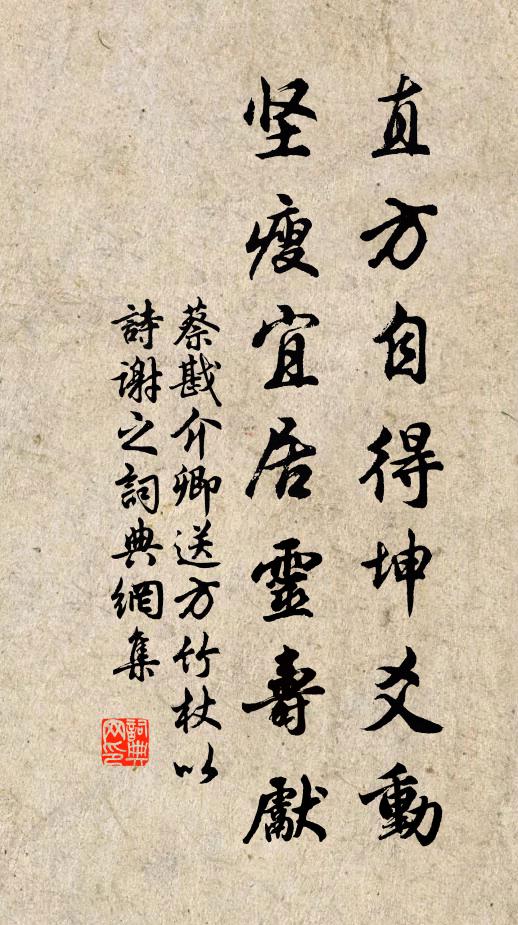 直方自得坤爻動
坚瘦宜居靈壽獻
蔡戡介卿送方竹杖以
詩谢之詞典網集
詞典網印